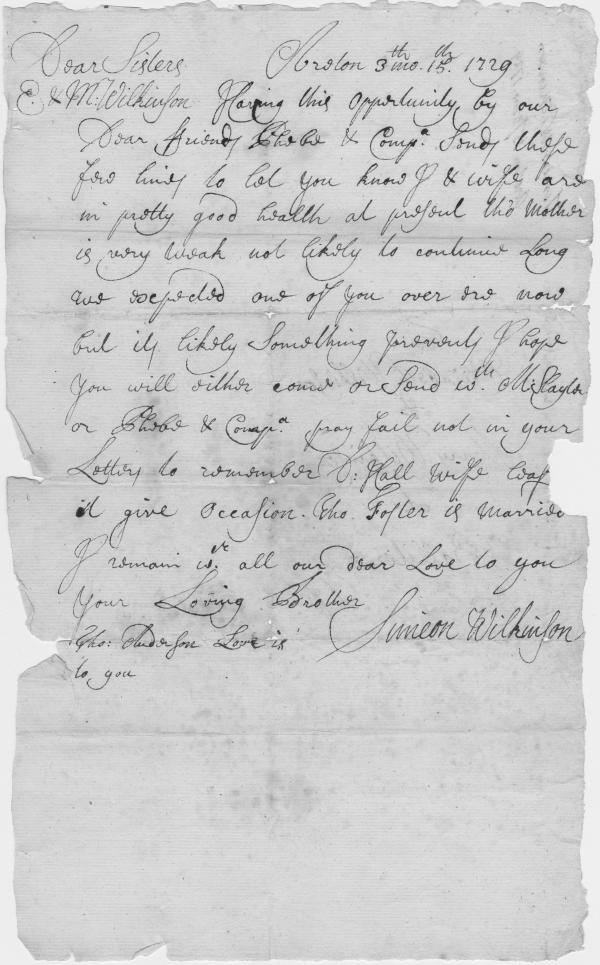 Dear Sisters Areton 3th mo. 15th. 1729
E. & M: Wilkinson Having this opportunity by our
Dear friends Phebe & Compa. Sends these
few lines to let you know I & wife are
in pretty good health at present tho Mother
is very weak not likely to continue Long
we expected one of you over ere now
but its likely Something prevents I hope
you will either come or Send wth. M: Slayter
or Phebe & Compa. pray fail not in your
Letters to remember D: Hall wife leas
it give Occasion. Tho. Foster is Married
I remain wth. all our dear Love to you
Your Loving Brother
Simeon Wilkinson
Tho: Anderson Love is
to you